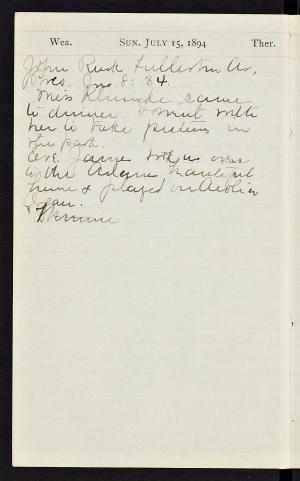 Wea. SUN. JULY 15, 1894 Ther.
John Rusk Fullerton Av,
Pres. Jno. 8: 34.
Miss Klumpke came
to dinner. I went with
her to take pictures in
the park.
Eve. Jamie took us over
to the Adams beautiful
home & played on Aeolian
Organ.